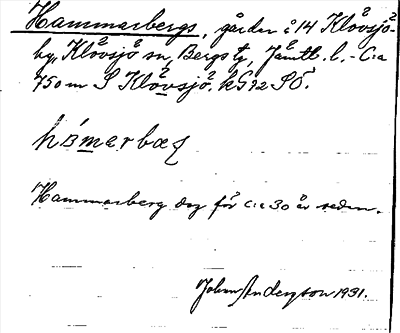 Hammarbergs, gården å 14 Klövsjö
by, Klövsjö sn, Bergs tg, Jämtl. l. - C:a
750 m S Klövsjö k
Hammarberg dog för c:a 30 år sedan.
Johan Anderzson 1931.